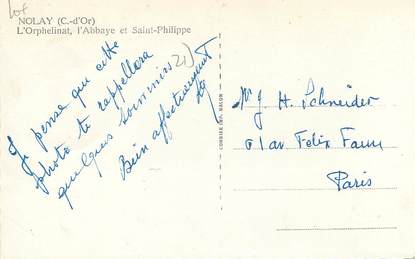 Lot
NOLAY (C.-d'Or)
L'Orphelinat, l'Abbaye et Saint-Philippe
Je pense que cette
photo te rappellera
quelques souvenirs
Bien affectueusement
COMBIER IMP. MACON
J. H. Schneider
av Felix Faure
Paris